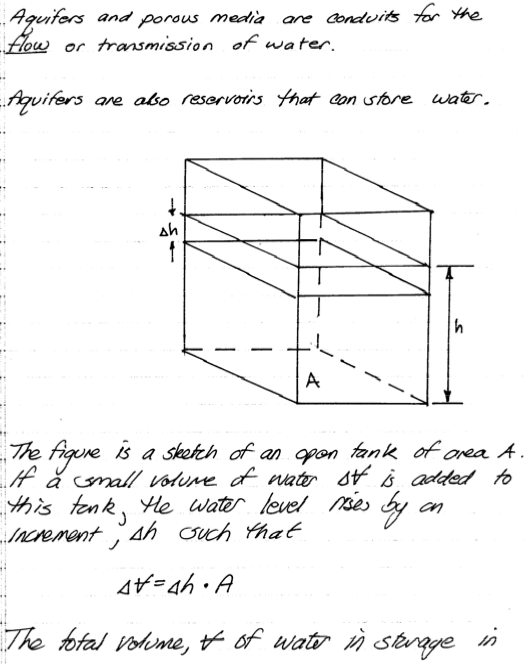 Aquifers and porous media are conduits for the
flow or transmission of water.
Aquifers are also reservoirs that can store water.
Δh
h
A
The figure is a sketch of an open tank of area A.
If a small volume of water ΔV is added to
this tank, the water level rises by an
increment, Δh such that
ΔV = Δh · A
The total volume, V of water in storage in